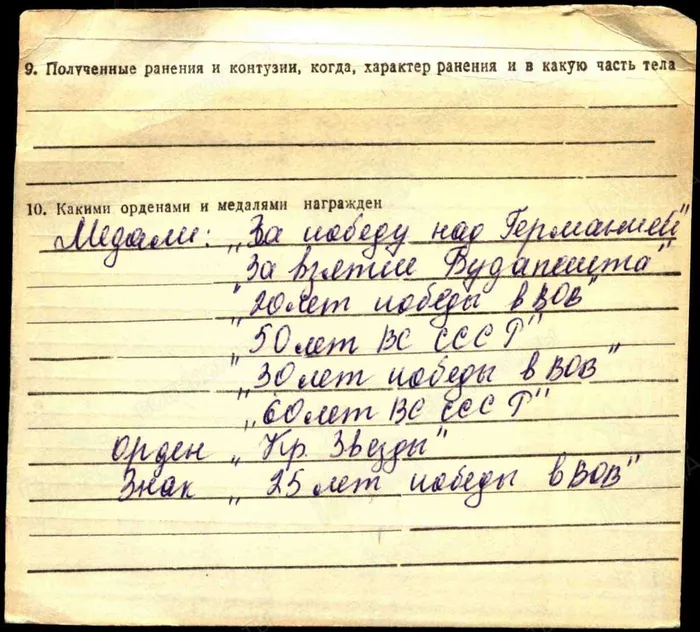 9. Полученные ранения и контузии, когда, характер ранения и в какую часть тела
10. Какими орденами и медалями награжден
Медали: „За победу над Германией"
„За взятие Будапешта"
„20 лет победы в ВОВ"
„50 лет ВС СССР"
„30 лет победы в ВОВ"
„60 лет ВС СССР"
орден „Кр. Звезды"
Знак „25 лет победы в ВОВ"